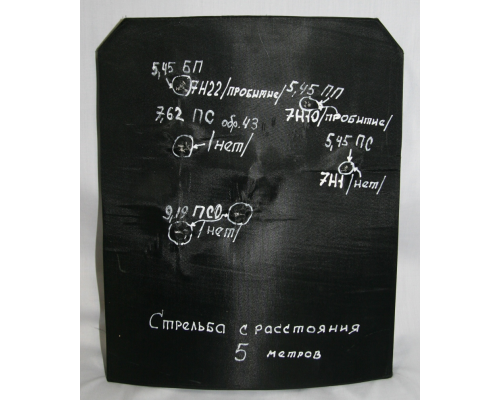 5,45 БП
7Н22/пробитие/
5,45 ПП
7Н10/пробитие/
7,62 ПС обр.43
/нет/
5,45 ПС
7Н1/нет/
9,19 ПСО
/нет/
Стрельба с расстояния
5 метров